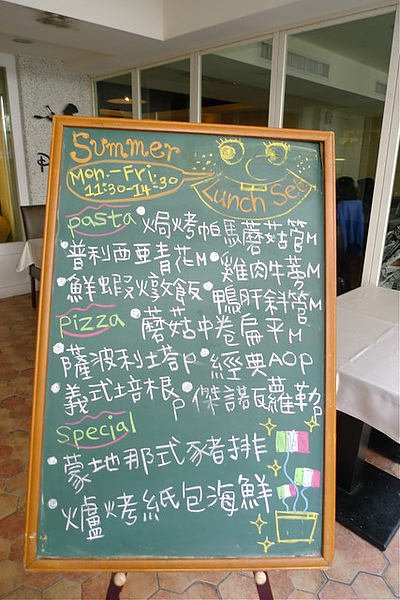 Summer
Mon.-Fri
11:30-14:30
Lunch Set
pasta •焗烤帕馬蘑菇管M
•普利西亞青花M •雞肉牛蒡M
•鮮蝦燉飯 •鴨肝斜管M
pizza •蘑菇中卷扁平M
•薩波利塔P •經典AOP
•義式培根P •傑諾瓦蘿勒P
Special
•蒙地那式豬排
•爐烤紙包海鮮